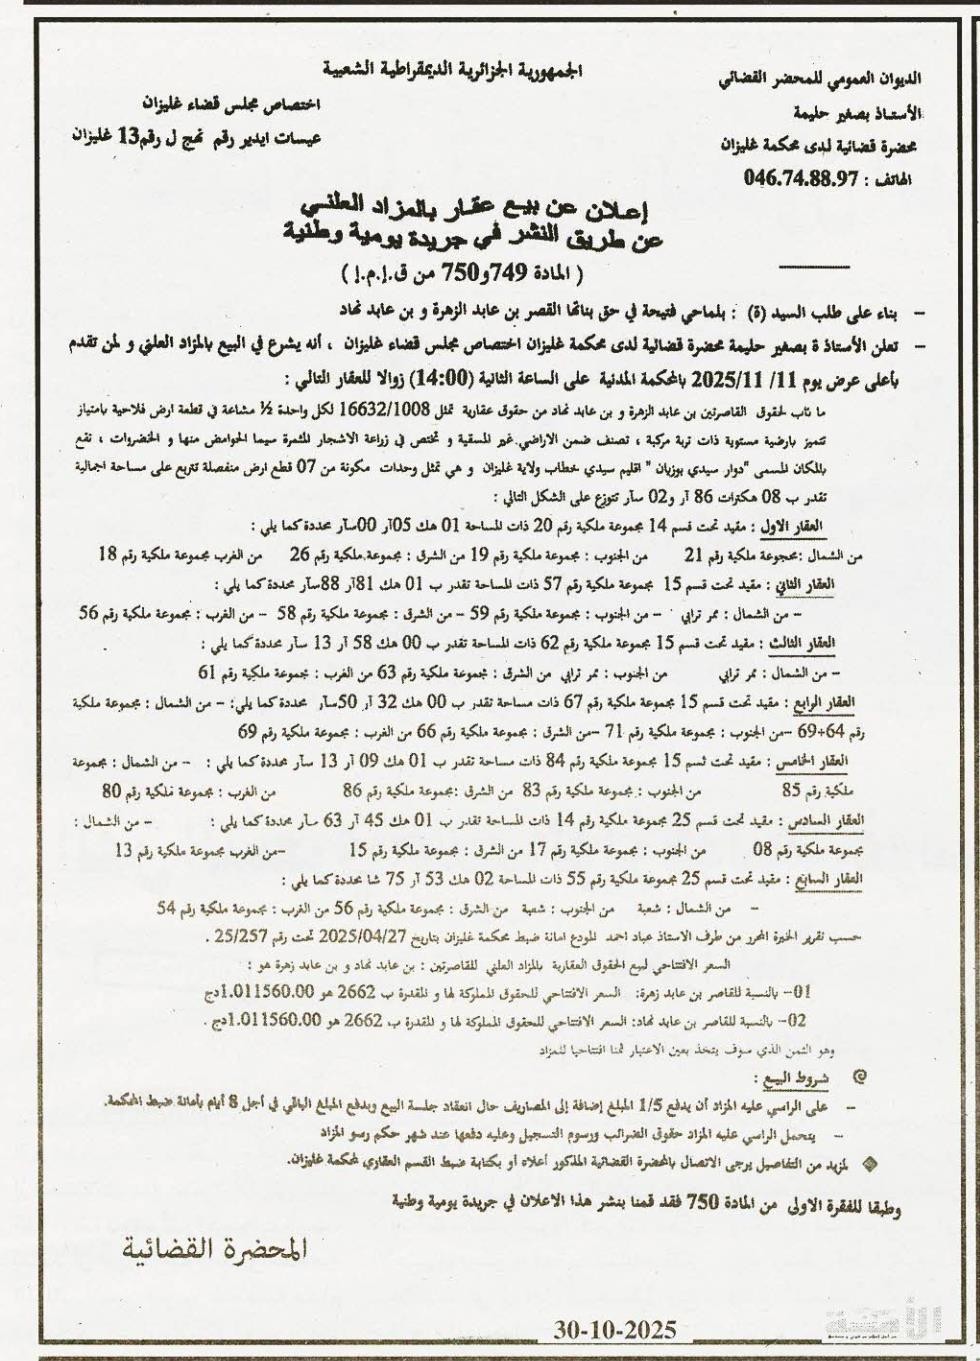 الجمهورية الجزائرية الديمقراطية الشعبية
الديوان العمومي للمحضر القضائي
الأستاذ بصغير حليمة
محضرة قضائية لدى محكمة غليزان
الهاتف : 046.74.88.97
اختصاص مجلس قضاء غليزان
عيسات ايدير رقم نهج ل رقم13 غليزان
إعلان عن بيع عقار بالمزاد العلني
عن طريق النشر في جريدة يومية وطنية
( المادة 749و750 من ق.إ.م.إ )
– بناء على طلب السيد (ة) : بلماحي فتيحة في حق بناتها القصر بن عابد الزهرة و بن عابد نهاد
– تعلن الأستاذ ة بصغير حليمة محضرة قضائية لدى محكمة غليزان اختصاص مجلس قضاء غليزان ، أنه يشرع في البيع بالمزاد العلني و لمن تقدم
بأعلى عرض يوم 11/ 2025/11 بالمحكمة المدنية على الساعة الثانية (14:00) زوالا للعقار التالي :
ما ناب لحقوق القاصرتين بن عابد الزهرة و بن عابد نهاد من حقوق عقارية تمثل 16632/1008 لكل واحدة ½ مشاعة في قطعة ارض فلاحية بامتياز
تتميز بارضية مستوية ذات تربة مركبة ، تصنف ضمن الاراضي غير المسقية و تختص في زراعة الاشجار المثمرة سيما الحوامض منها و الخضروات ، تقع
بالمكان المسمى "دوار سيدي بوزيان " اقليم سيدي خطاب ولاية غليزان و هي تمثل وحدات مكونة من 07 قطع ارض منفصلة تتربع على مساحة اجمالية
تقدر ب 08 هكترات 86 آر و02 سآر تتوزع على الشكل التالي :
العقار الاول : مقيد تحت قسم 14 مجموعة ملكية رقم 20 ذات المساحة 01 هك 05آر 00سآر محددة كما يلي :
من الشمال :محجوعة ملكية رقم 21 من الجنوب : مجموعة ملكية رقم 19 من الشرق : مجموعة ملكية رقم 26 من الغرب مجموعة ملكية رقم 18
العقار الثاني : مقيد تحت قسم 15 مجموعة ملكية رقم 57 ذات المساحة تقدر ب 01 هك 81آر 88سآر محددة كما يلي :
– من الشمال : ممر ترابي – من الجنوب : مجموعة ملكية رقم 59 – من الشرق : مجموعة ملكية رقم 58 – من الغرب : مجموعة ملكية رقم 56
العقار الثالث : مقيد تحت قسم 15 مجموعة ملكية رقم 62 ذات المساحة تقدر ب 00 هك 58 آر 13 سآر محددة كما يلي :
– من الشمال : ممر ترابي من الجنوب : ممر ترابي من الشرق : مجموعة ملكية رقم 63 من الغرب : مجموعة ملكية رقم 61
العقار الرابع : مقيد تحت قسم 15 مجموعة ملكية رقم 67 ذات مساحة تقدر ب 00 هك 32 آر 50سآر محددة كما يلي: – من الشمال : مجموعة ملكية
رقم 64+69 –من الجنوب : مجموعة ملكية رقم 71 –من الشرق : مجموعة ملكية رقم 66 من الغرب : مجموعة ملكية رقم 69
العقار الخامس : مقيد تحت قسم 15 مجموعة ملكية رقم 84 ذات مساحة تقدر ب 01 هك 09 آر 13 سآر محددة كما يلي : – من الشمال : مجموعة
ملكية رقم 85 من الجنوب : مجموعة ملكية رقم 83 من الشرق :مجموعة ملكية رقم 86 من الغرب : مجموعة ملكية رقم 80
العقار السادس : مقيد تحت قسم 25 مجموعة ملكية رقم 14 ذات المساحة تقدر ب 01 هك 45 آر 63 سآر محددة كما يلي : – من الشمال :
مجموعة ملكية رقم 08 من الجنوب : مجموعة ملكية رقم 17 من الشرق : مجموعة ملكية رقم 15 –من الغرب مجموعة ملكية رقم 13
العقار السابع : مقيد تحت قسم 25 مجموعة ملكية رقم 55 ذات المساحة 02 هك 53 آر 75 شا محددة كما يلي :
– من الشمال : شعبة من الجنوب : شعبة من الشرق : مجموعة ملكية رقم 56 من الغرب : مجموعة ملكية رقم 54
حسب تقرير الخبرة المحرر من طرف الاستاذ عباد احمد المودع امانة ضبط محكمة غليزان بتاريخ 2025/04/27 تحت رقم 25/257 .
السعر الافتتاحي لبيع الحقوق العقارية بالمزاد العلني للقاصرتين : بن عابد نهاد و بن عابد زهرة هو :
01– بالنسبة للقاصر بن عابد زهرة: السعر الافتتاحي للحقوق المملوكة لها و المقدرة ب 2662 هو 1.011560.00دج
02– بالنسبة للقاصر بن عابد نهاد: السعر الافتتاحي للحقوق المملوكة لها و المقدرة ب 2662 هو 1.011560.00دج .
وهو الثمن الذي سوف يتخذ بعين الاعتبار ثمنا افتتاحيا للمزاد
شروط البيع :
– على الراسي عليه المزاد أن يدفع 1/5 المبلغ إضافة إلى المصاريف حال انعقاد جلسة البيع ويدفع المبلغ الباقي في أجل 8 أيام بأمانة ضبط المحكمة.
– يتحمل الراسي عليه المزاد حقوق الضرائب ورسوم التسجيل وعليه دفعها عند شهر حكم رسو المزاد
لمزيد من التفاصيل يرجى الاتصال بالمحضرة القضائية المذكور أعلاه أو بكتابة ضبط القسم العقاري لمحكمة غليزان.
وطبقا للفقرة الاولى من المادة 750 فقد قمنا بنشر هذا الاعلان في جريدة يومية وطنية
المحضرة القضائية
30-10-2025